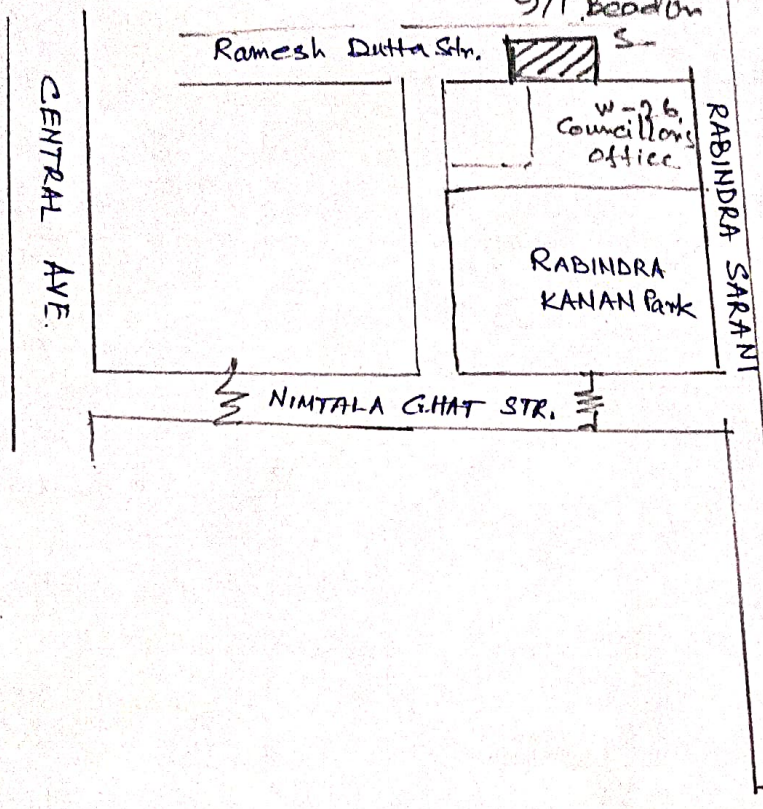 9/1, Beadon
S
Ramesh Dutta Str.
W-26
Councillor's
office
CENTRAL AVE.
RABINDRA SARANI
RABINDRA
KANAN Park
NIMTALA GHAT STR.